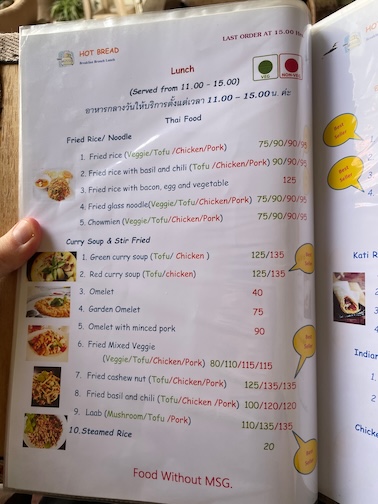 HOT BREAD
Breakfast Brunch Lunch
LAST ORDER AT 15.00
Lunch
VEG
NON-VEG
(Served from 11.00 - 15.00)
อาหารกลางวันให้บริการตั้งแต่เวลา 11.00 - 15.00น. ค่ะ
Thai Food
Fried Rice/ Noodle
1. Fried rice (Veggie/Tofu /Chicken/Pork) 75/90/90/95
2. Fried rice with basil and chili (Tofu /Chicken/Pork) 90/90/95
3. Fried rice with bacon, egg and vegetable 125
4. Fried glass noodle(Veggie/Tofu/Chicken/Pork) 75/90/90/95
5. Chowmien (Veggie/Tofu/Chicken/Pork) 75/90/90/95
Curry Soup & Stir Fried
1. Green curry soup (Tofu/ Chicken ) 125/135
2. Red curry soup (Tofu/chicken) 125/135
3. Omelet 40
4. Garden Omelet 75
5. Omelet with minced pork 90
6. Fried Mixed Veggie
(Veggie/Tofu/Chicken/Pork) 80/110/115/115
7. Fried cashew nut (Tofu/Chicken/Pork) 125/135/135
8. Fried basil and chili (Tofu/Chicken /Pork) 100/120/120
9. Laab (Mushroom/Tofu /Pork) 110/135/135
10.Steamed Rice 20
Food Without MSG.
Best
Seller
Best
Seller
Kati R
Indian
Chicke